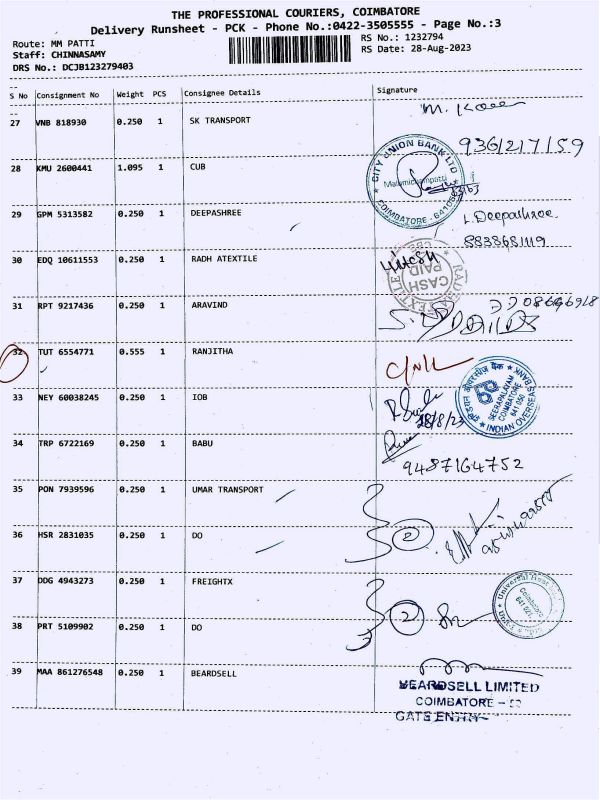 THE PROFESSIONAL COURIERS, COIMBATORE
Delivery Runsheet - PCK - Phone No.:0422-3505555 - Page No.:3
Route: MM PATTI
RS No.: 1232794
Staff: CHINNASAMY
RS Date: 28-Aug-2023
DRS No.: DCJB123279403
S No Consignment No Weight PCS Consignee Details Signature
27 VNB 818930 0.250 1 SK TRANSPORT
9361217159
28 KMU 2600441 1.095 1 CUB
CITY UNION BANK LTD
COIMBATORE
29 GPM 5313582 0.250 1 DEEPASHREE L. Deepashree
8838681119
30 EDQ 10611553 0.250 1 RADH ATEXTILE
CASH
PAID
31 RPT 9217436 0.250 1 ARAVIND
32 TUT 6554771 0.555 1 RANJITHA
33 NEY 60038245 0.250 1 IOB
28/8/23
SEERAPALAYAM
COIMBATORE
641 050
INDIAN OVERSEAS BANK
34 TRP 6722169 0.250 1 BABU
9487164752
35 PON 7939596 0.250 1 UMAR TRANSPORT
36 HSR 2831035 0.250 1 DO 2
37 DDG 4943273 0.250 1 FREIGHTX
Coimbatore
38 PRT 5109902 0.250 1 DO 2
39 MAA 861276548 0.250 1 BEARDSELL
BEARDSELL LIMITED
COIMBATORE
GATE ENTRY